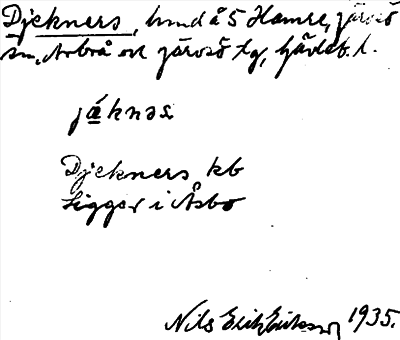 Djekners, hmd å 5 Hamre, Järvsö
sn, Arbrå och Järvsö tg, Gävleb. l.
jä́knəs
Djekners kb
Ligger i Åsbo
Nils Erik Eriksson 1935.